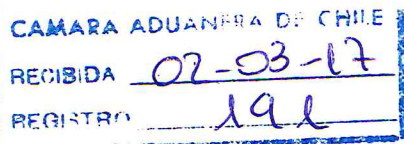 CAMARA ADUANERA DE CHILE
RECIBIDA 02-03-17
REGISTRO 191